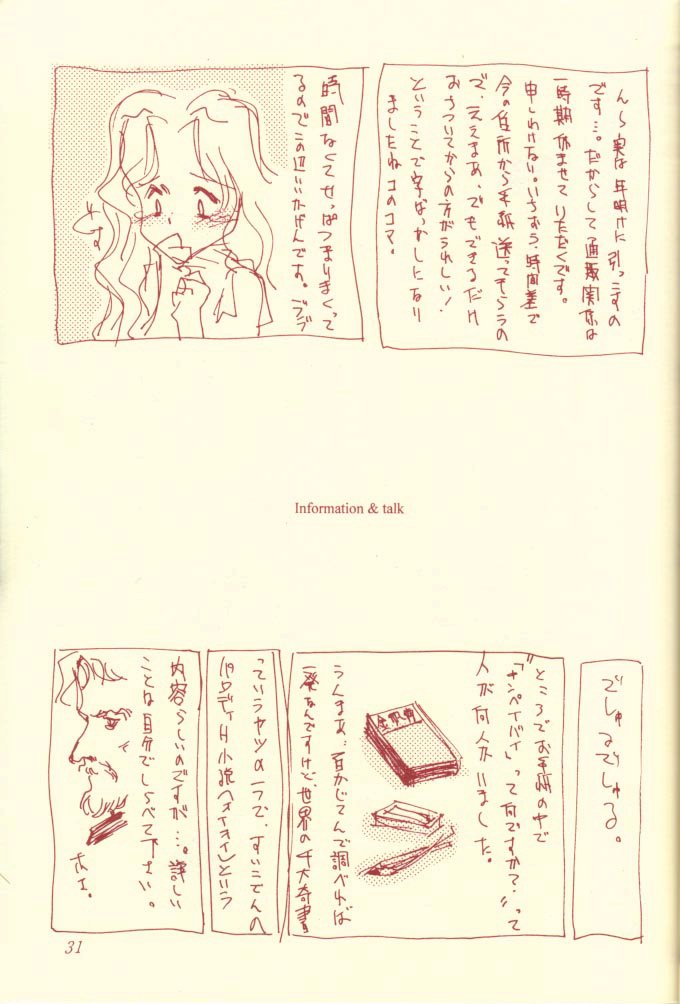 ん〜実は年明けに引っこすの
です…。だからして通販関係は
一時期休ませていただくです。
申しわけない。いちおう、時間差で
今の住所から手紙送ってもらうの
で、ええまあ、でもできるだけ
おちついてからの方がうれしい！
ということで字ばっかしになり
ましたねコのコマ。
時間なくてせっぱつまりまくって
るのでこの辺いいかげんです。
Information & talk
でしゅるでしゅる。
ところでお手紙の中で
「キンペイバイ」って何ですか？〃って
人が何人かいました。
金瓶梅
うんまあ…百かじてんで調べれば
一発なんですけど、世界の4大奇書
っていうヤツの一つで、すいこでんの
パロディH小説（オイオイ）という
内容らしいのですが…。詳しい
ことは自分でしらべて下さい。
31